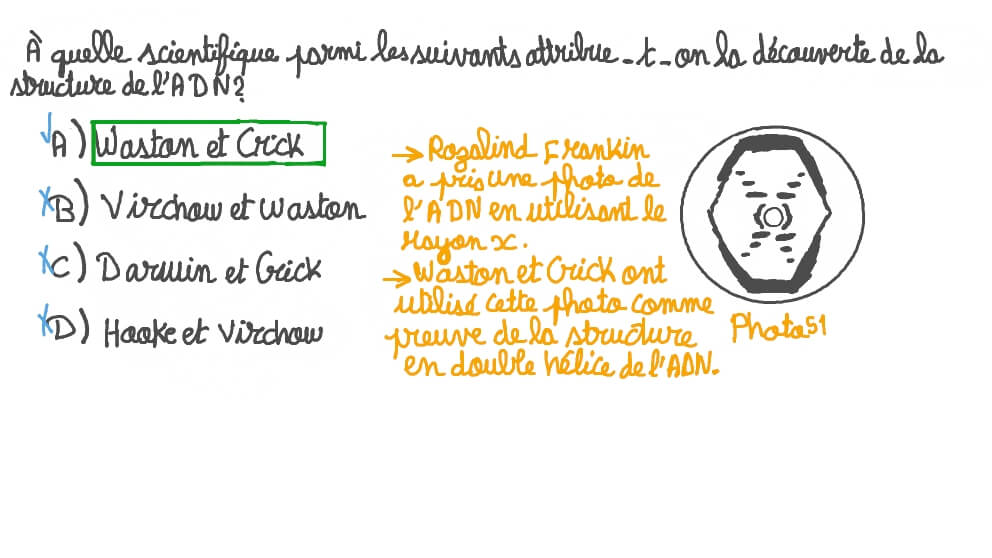 À quelle scientifique parmi les suivants attribue-t-on la découverte de la
structure de l'ADN?
A) Waston et Crick
B) Virchow et Waston
C) Darwin et Crick
D) Hooke et Virchow
→ Rozalind Frankin
a pris une photo de
l'ADN en utilisant le
Rayon x.
→ Waston et Crick ont
utilisé cette photo comme
preuve de la structure
en double hélice de l'ADN.
Photo 51